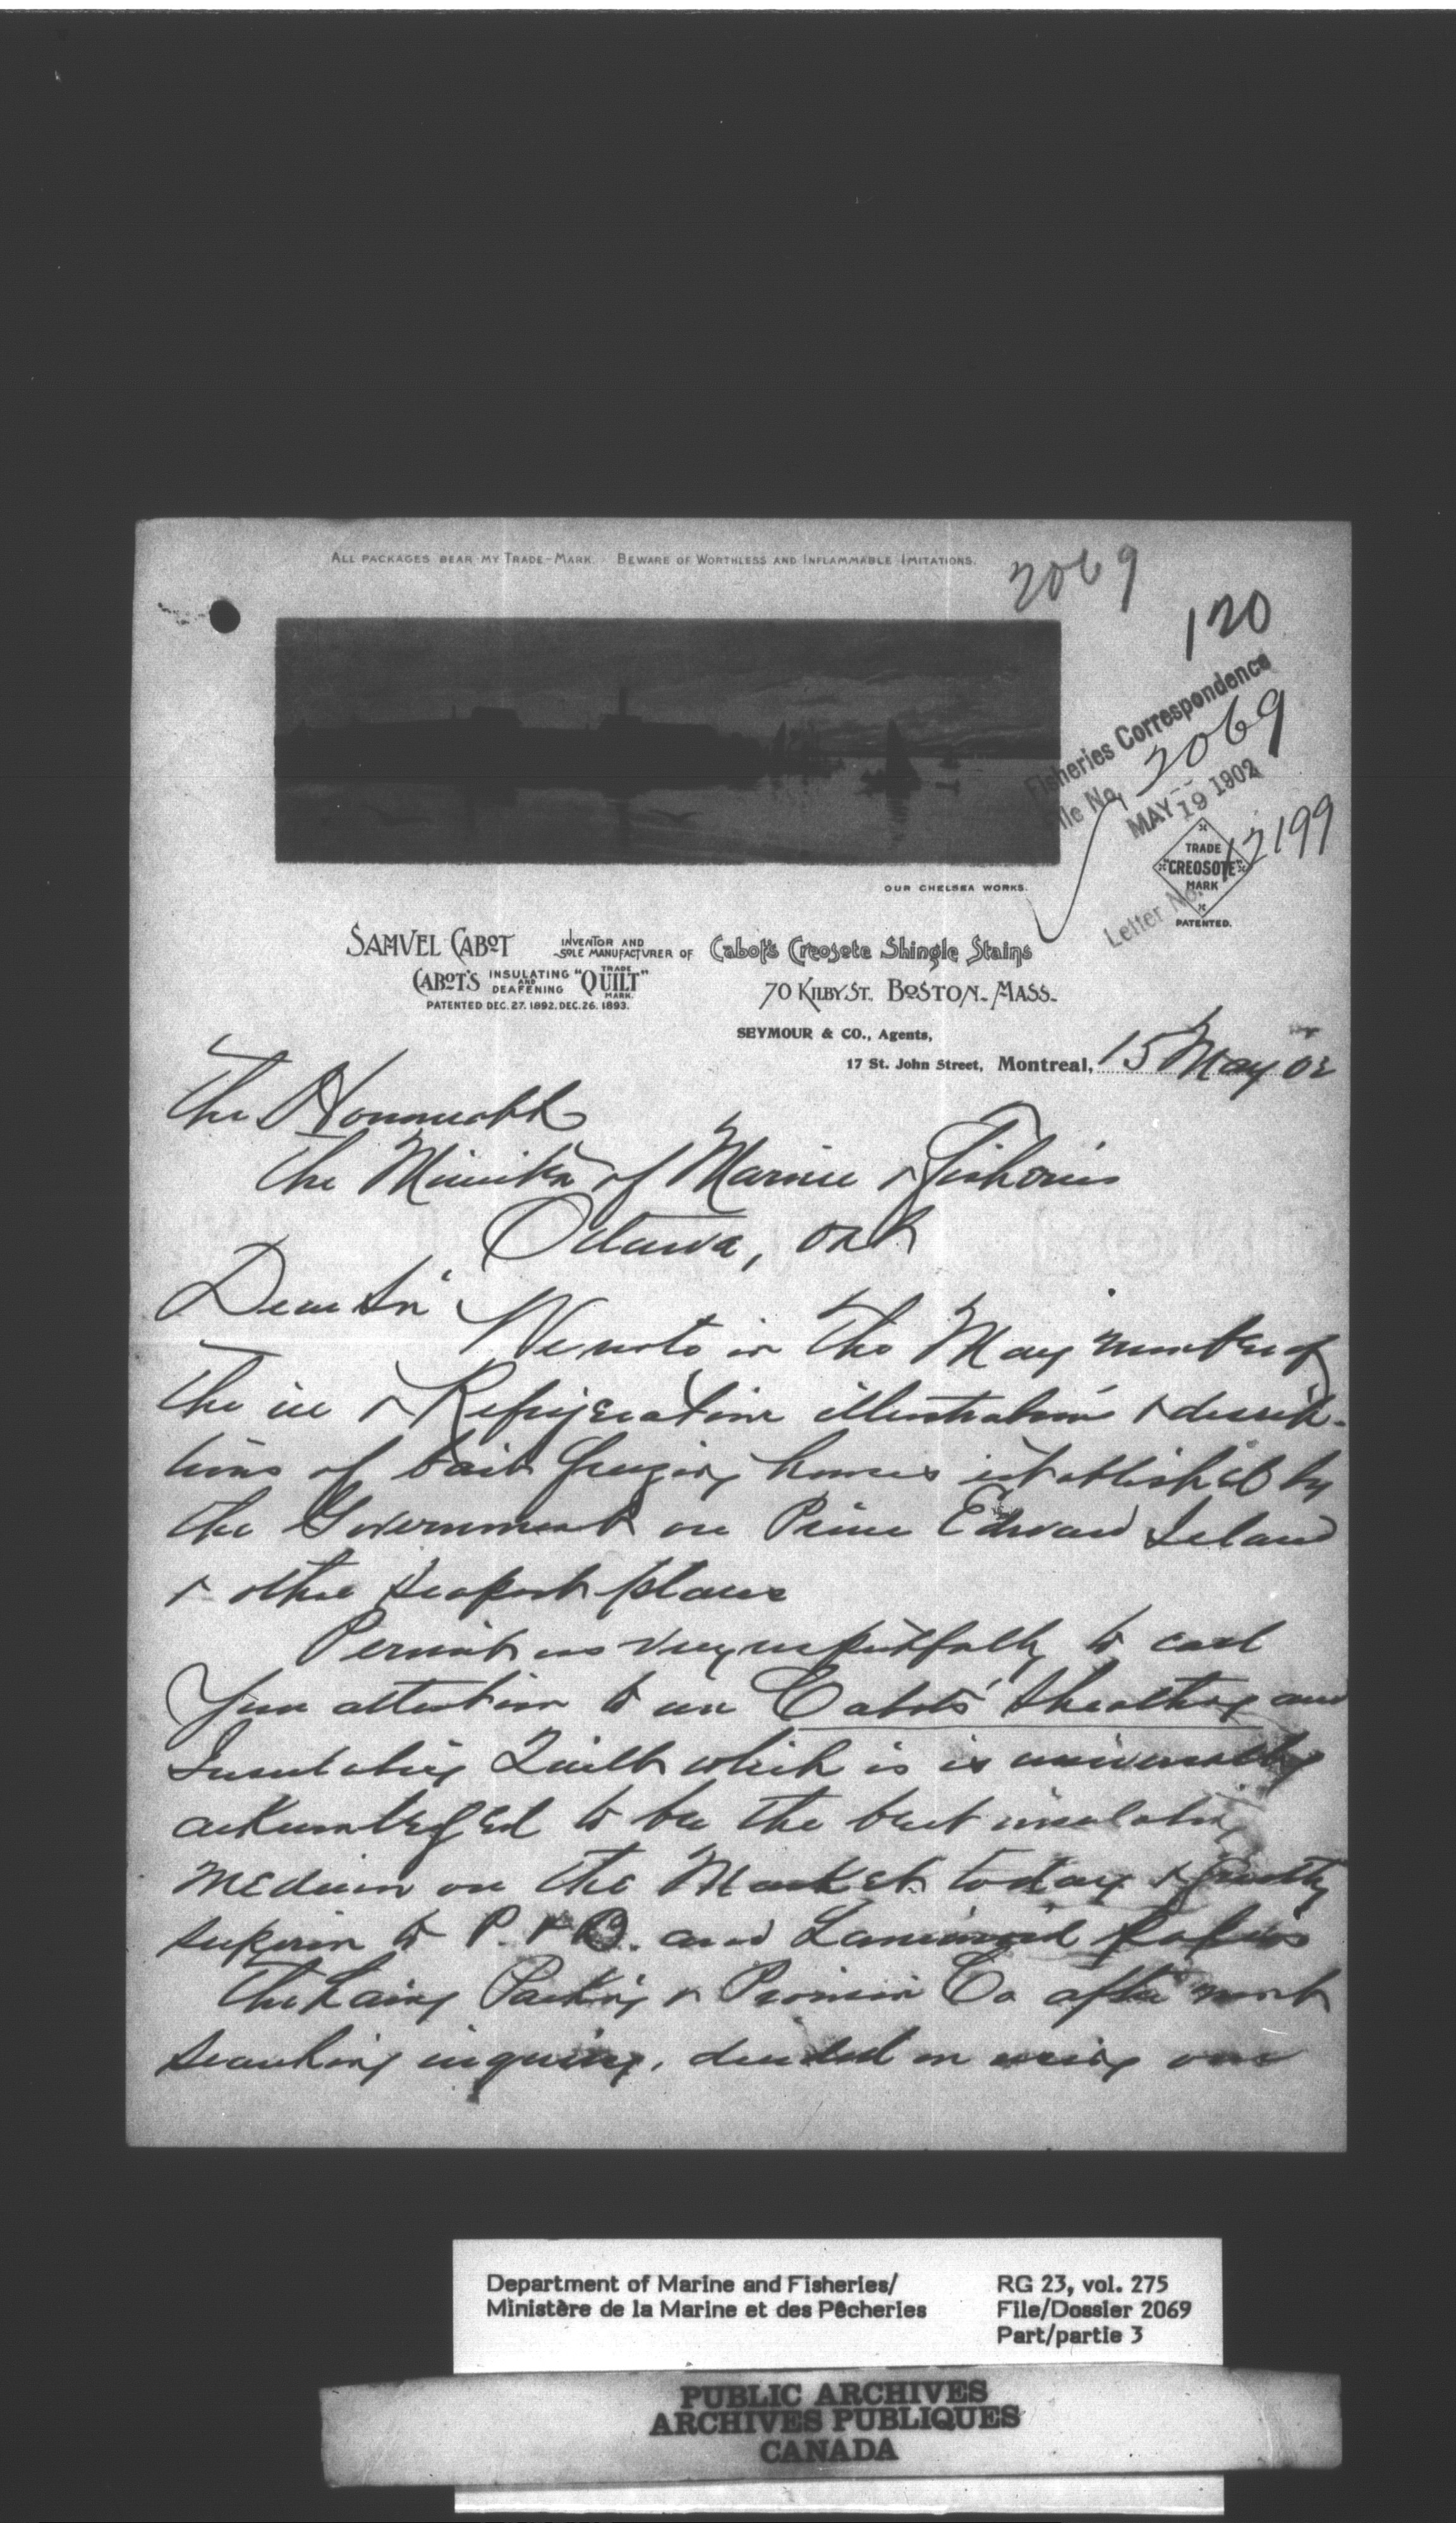 ALL PACKAGES BEAR MY TRADE-MARK. BEWARE OF WORTHLESS AND INFLAMMABLE IMITATIONS.
2069
120
Fisheries Correspondence
File No. 2069
MAY 19 1902
TRADE
"CREOSOTE"
MARK
PATENTED.
Letter No. 12199
OUR CHELSEA WORKS.
SAMVEL CABOT INVENTOR AND SOLE MANUFACTURER OF Cabot's Creosote Shingle Stains
CABOT'S INSULATING AND DEAFENING "QUILT" TRADE MARK.
PATENTED DEC. 27. 1892. DEC. 26. 1893.
70 KILBY ST. BOSTON. MASS.
SEYMOUR & CO., Agents,
17 St. John Street, Montreal, 15 May 02
The Honourable
The Minister of Marine & Fisheries
Ottawa, Ont
Dear Sir
We note in the May number of
the ice & Refrigeration illustrations & descrip-
tions of bait freezing houses established by
the Government on Prince Edward Island
& other seaport places
Permit us very respectfully to call
your attention to our Cabots' Sheathing and
Insulating Quilt which is is universally
acknowledged to be the best insulating
medium on the Market today & greatly
superior to P. & B. and papers
The Laing Packing & Provision Co after most
searching inquiry, decided on using our
Department of Marine and Fisheries/
Ministère de la Marine et des Pêcheries
RG 23, vol. 275
File/Dossier 2069
Part/partie 3
PUBLIC ARCHIVES
ARCHIVES PUBLIQUES
CANADA